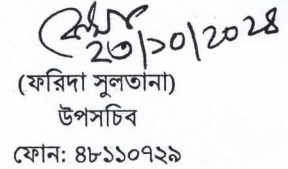 ২৩/১০/২০২৪
(ফরিদা সুলতানা)
উপসচিব
ফোন: ৪৮১১০৭২৯